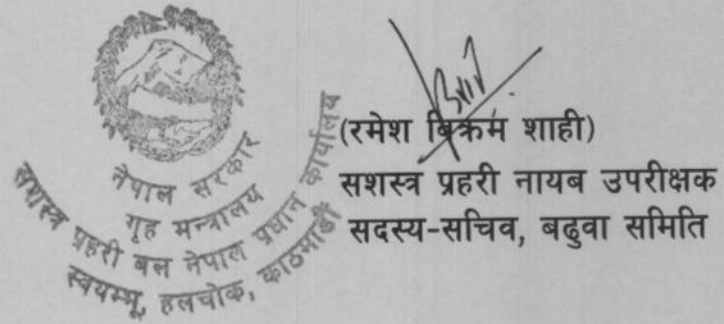 नेपाल सरकार
गृह मन्त्रालय
सशस्त्र प्रहरी बल नेपाल प्रधान कार्यालय
स्वयम्भू, हलचोक, काठमाडौं
(रमेश बिक्रम शाही)
सशस्त्र प्रहरी नायब उपरीक्षक
सदस्य-सचिव, बढुवा समिति